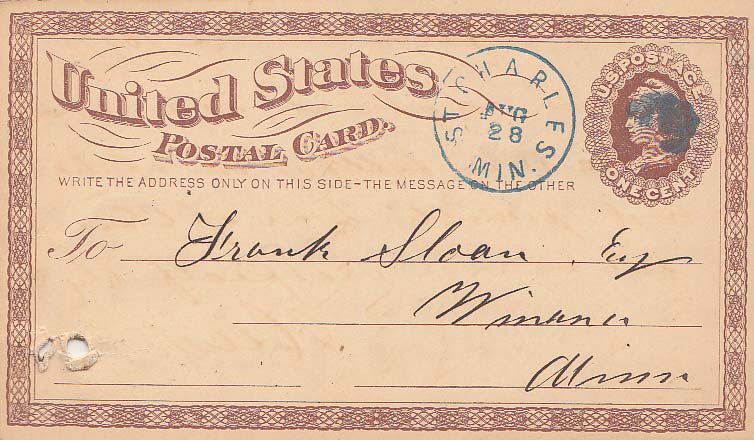 United States
POSTAL CARD.
WRITE THE ADDRESS ONLY ON THIS SIDE-THE MESSAGE ON THE OTHER
ST CHARLES
AUG
28
MIN.
U.S. POSTAGE
ONE CENT
To Frank Sloan, Esq
Winona
Minn